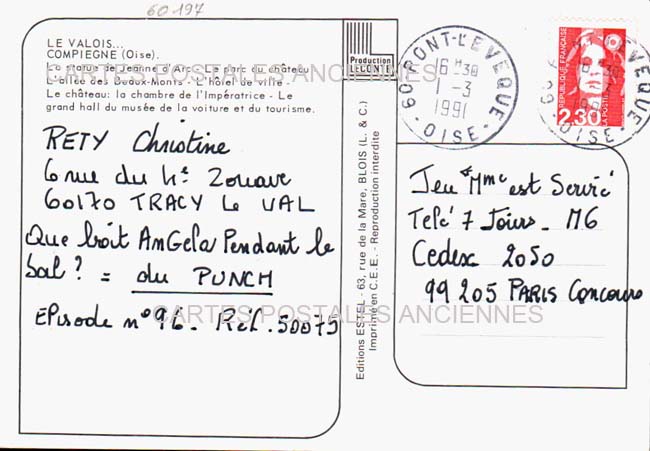 60197
LE VALOIS...
COMPIEGNE (Oise).
La statue de Jeanne d'Arc - Le parc du château
L'allée des Beaux-Monts - L'hôtel de ville -
Le château: la chambre de l'Impératrice - Le
grand hall du musée de la voiture et du tourisme.
CARTES POSTALES ANCIENNES
RETY Christine
6 rue du 4e Zouave
60170 TRACY le VAL
Que boit AnGela Pendant le
bal? = du PUNCH
EPisode n°96. Ref. 50075
CARTES POSTALES ANCIENNES
Production
LECONTE
Editions ESTEL - 63, rue de la Mare, BLOIS (L. & C.)
Imprimé en C.E.E. - Reproduction interdite
60 PONT-L'EVEQUE
16 H 30
1 - 3
1991
OISE
REPUBLIQUE FRANÇAISE
LA POSTE
2,30
Jeu "Mme est Servie"
Telé 7 Jours - M6
Cedex 2050
99205 PARIS Concours